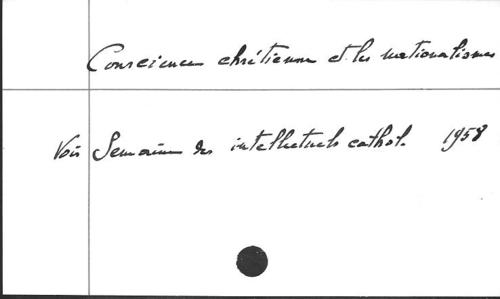 Conscience chrétienne et les nationalismes
Voir Semaine des intellectuels cathol. 1958